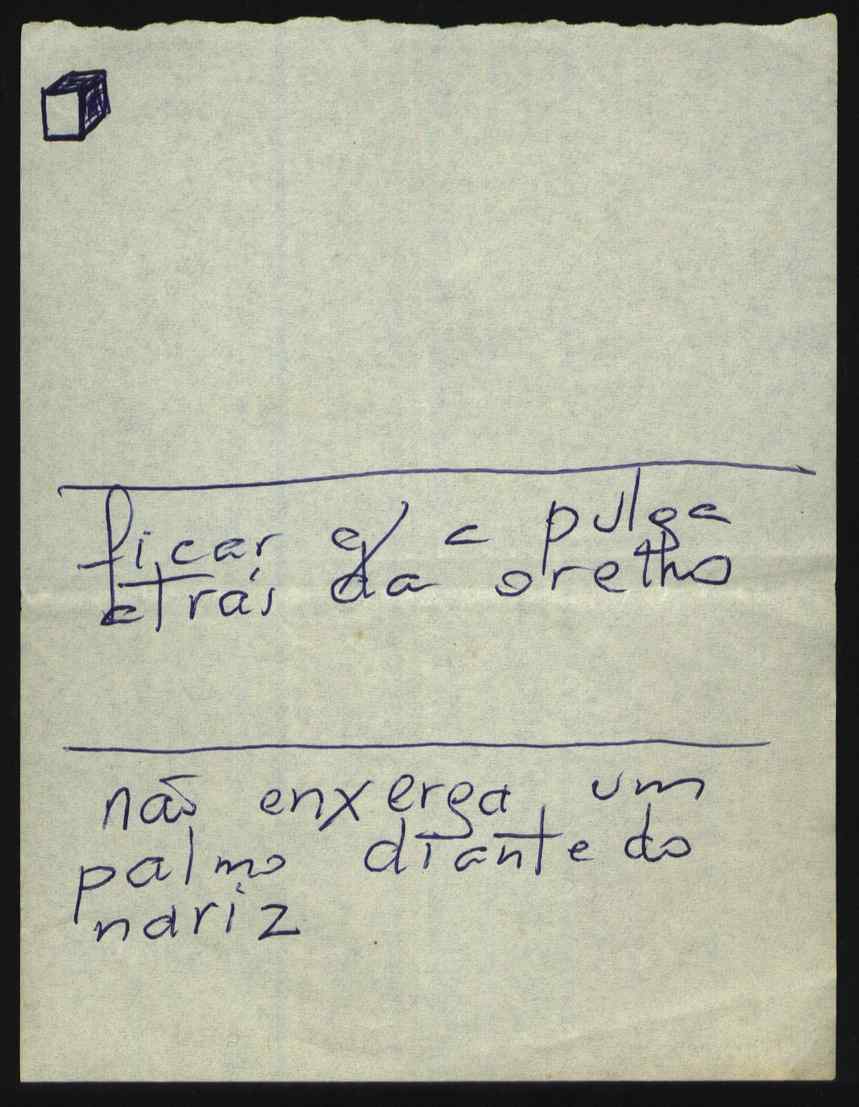 ficar c/ a pulga
atrás da orelha
não enxerga um
palmo diante do
nariz